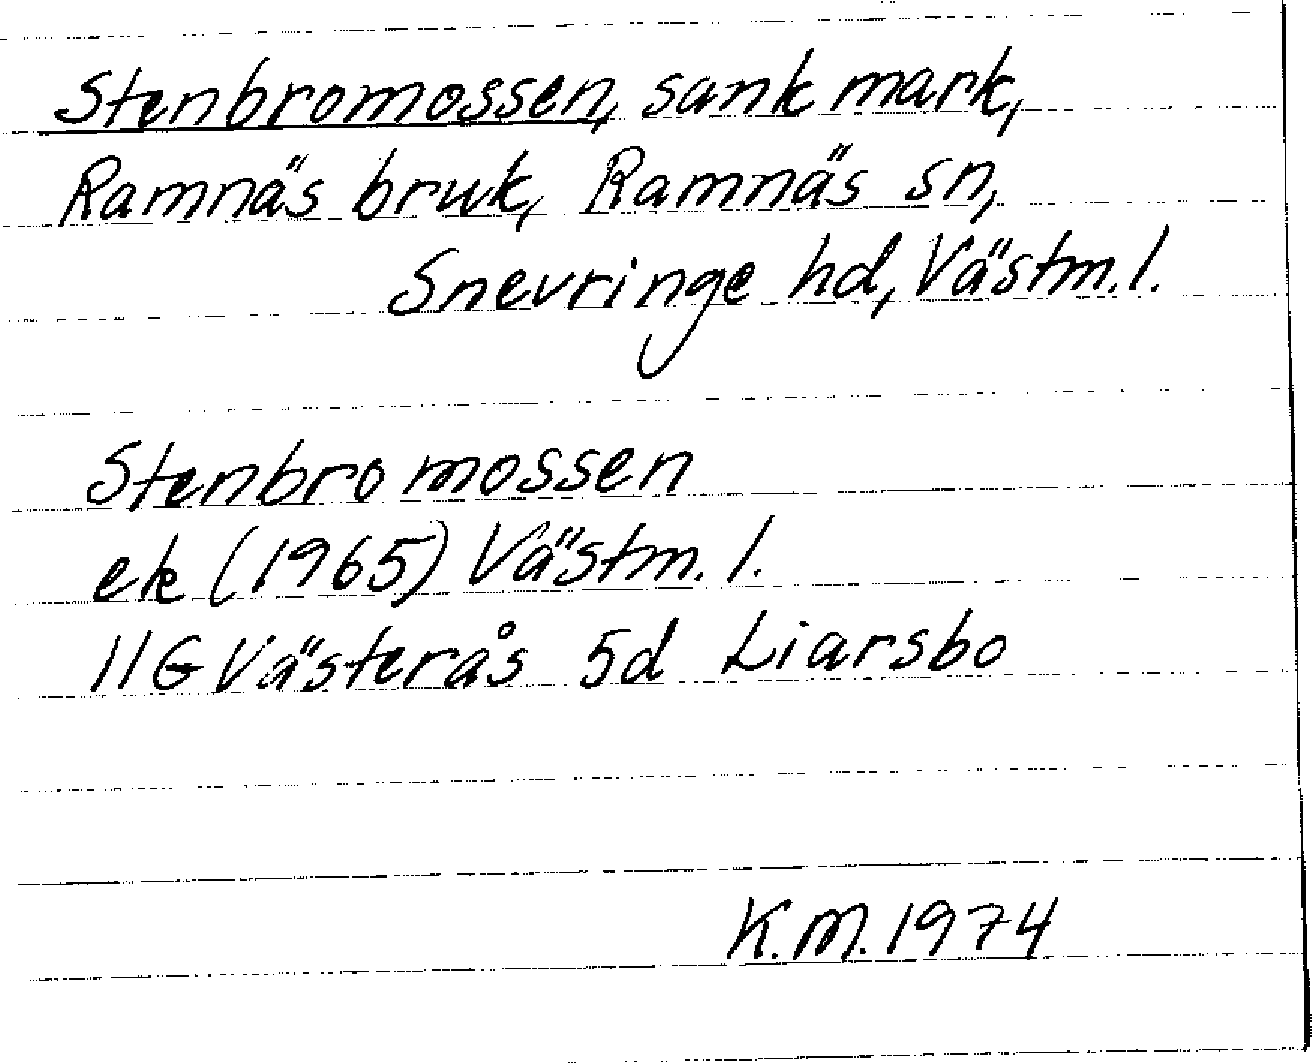 Stenbromossen, sank mark,
Ramnäs bruk, Ramnäs sn,
Snevringe hd, Västm. l.
Stenbromossen
ek (1965) Västm. l.
11G Västerås 5d Liarsbo
K.M. 1974